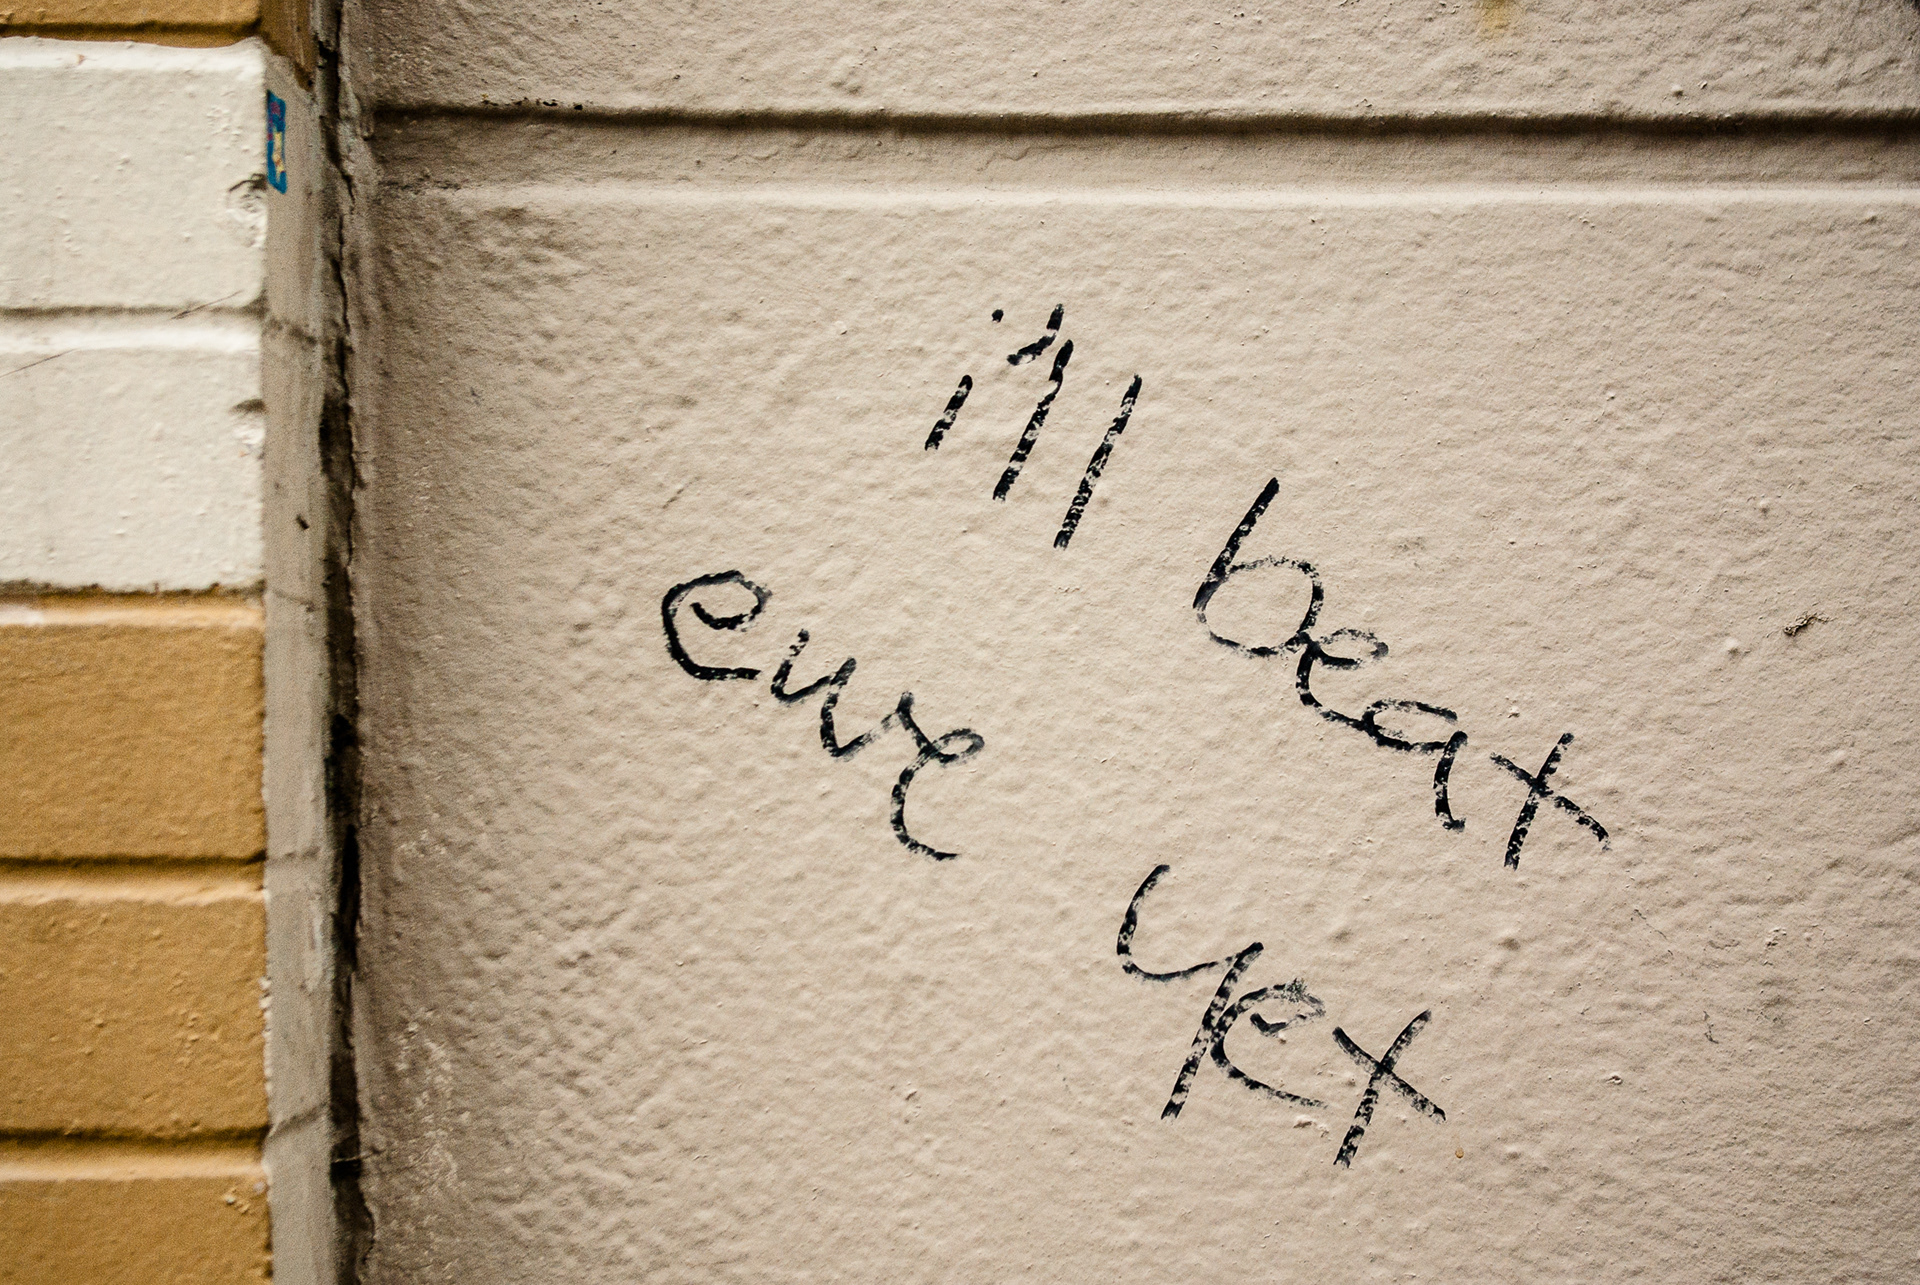 i'll beat
eure yet